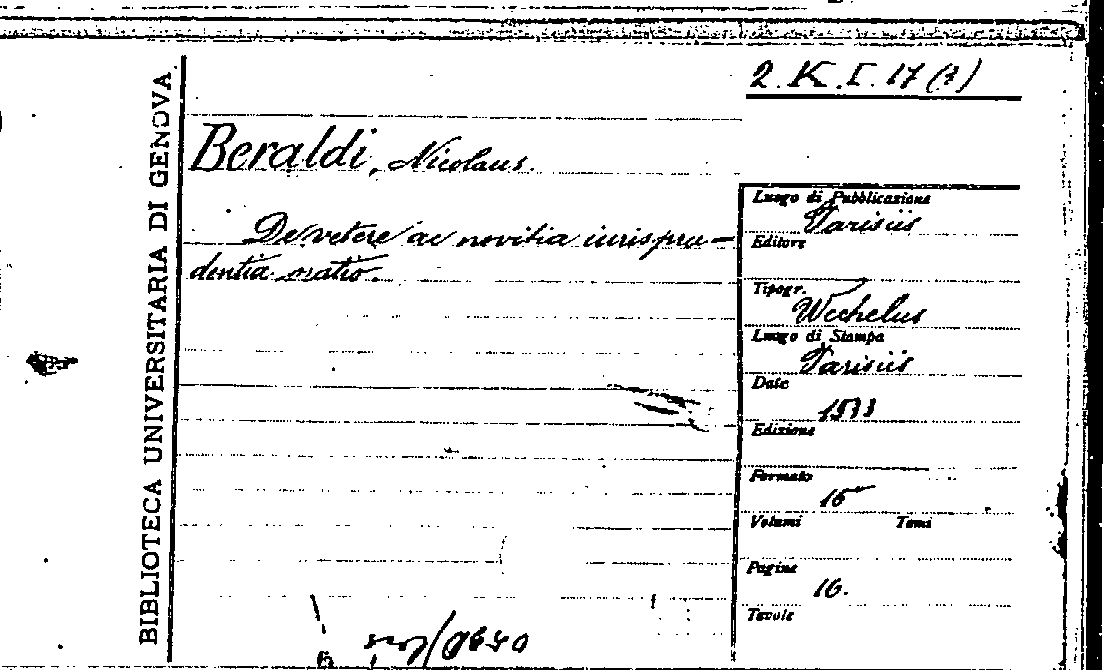 2. K. I. 17 (7)
BIBLIOTECA UNIVERSITARIA DI GENOVA
Beraldi, Nicolaus.
De vetere ac novitia iurispru-
dentia oratio.
Luogo di Pubblicazione
Parisiis
Editore
Tipogr.
Wechelus
Luogo di Stampa
Parisiis
Date
1533
Edizione
Formato
16º
Volumi Tomi
Pagine
16.
Tavole